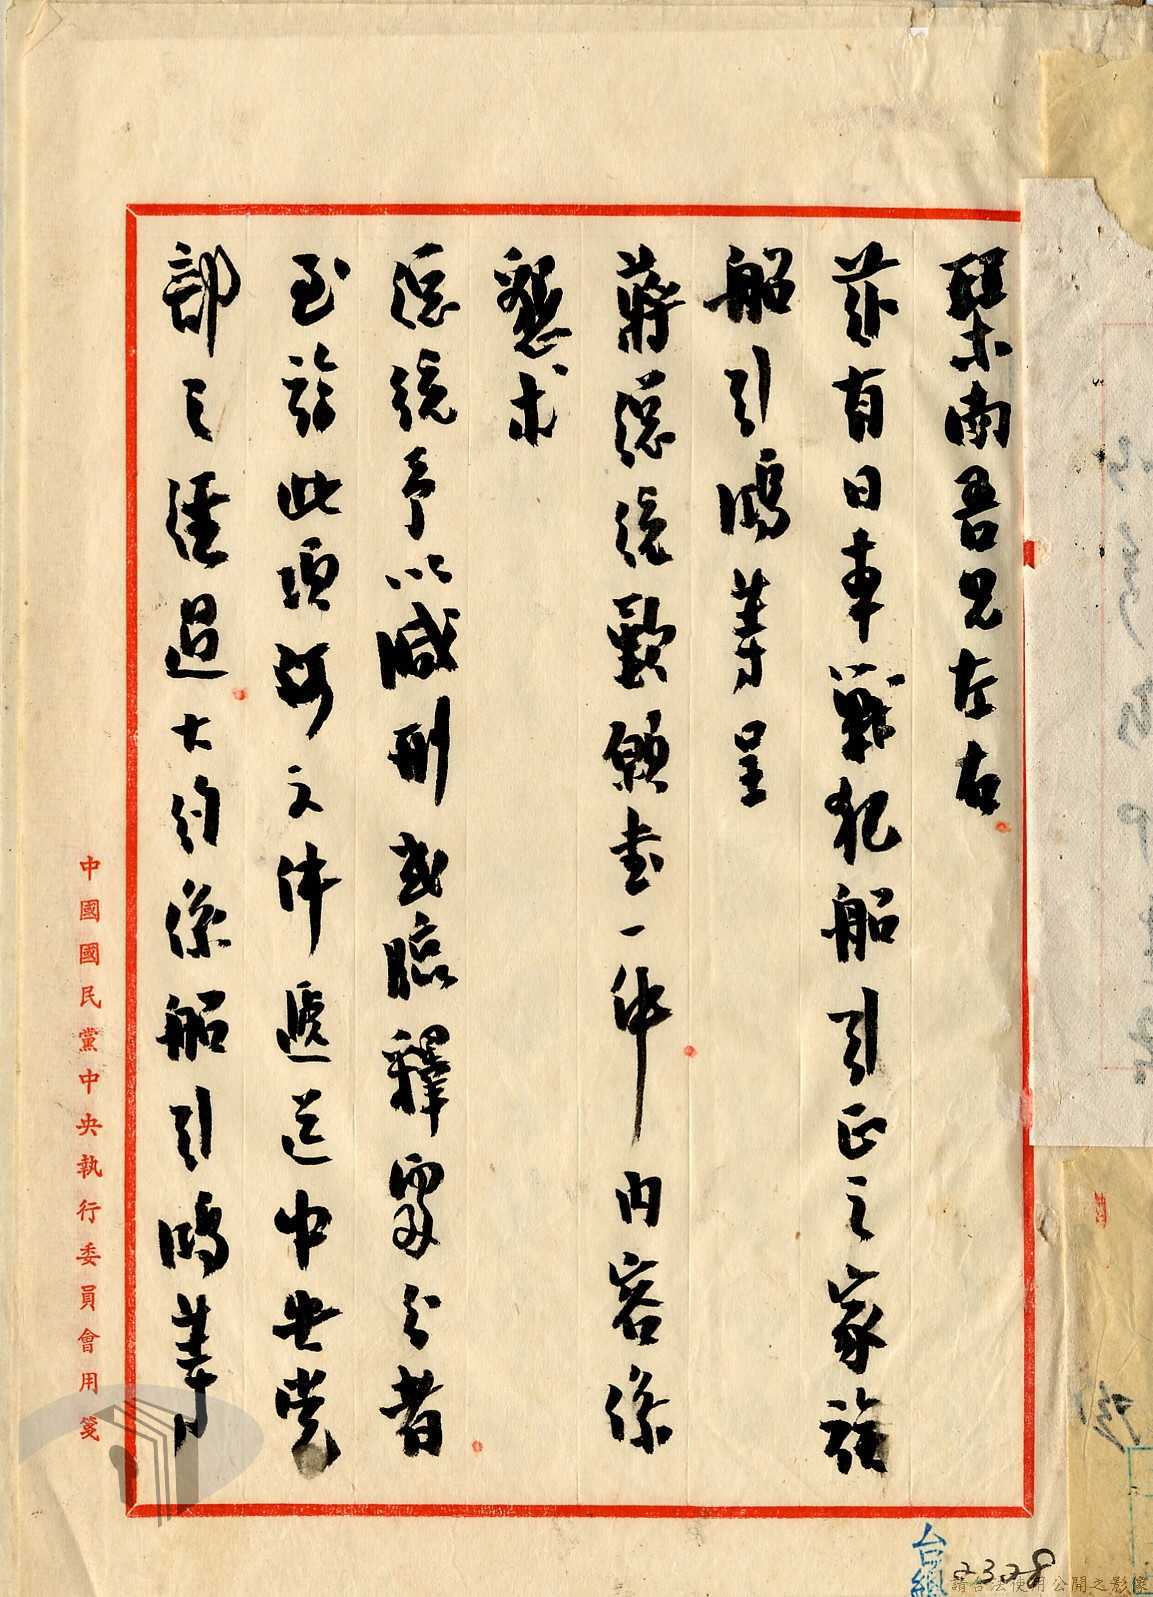 棐南吾兄左右
茲有日本戰犯船引正之家族
船引鴻等呈
蔣總統歎願書一件內容係
懇求
總統予以減刑或臨釋處分者
至於此項文件遞送中央黨
部之經過大約係船引鴻等
中國國民黨中央執行委員會用箋
2328
請合法使用公開之影像